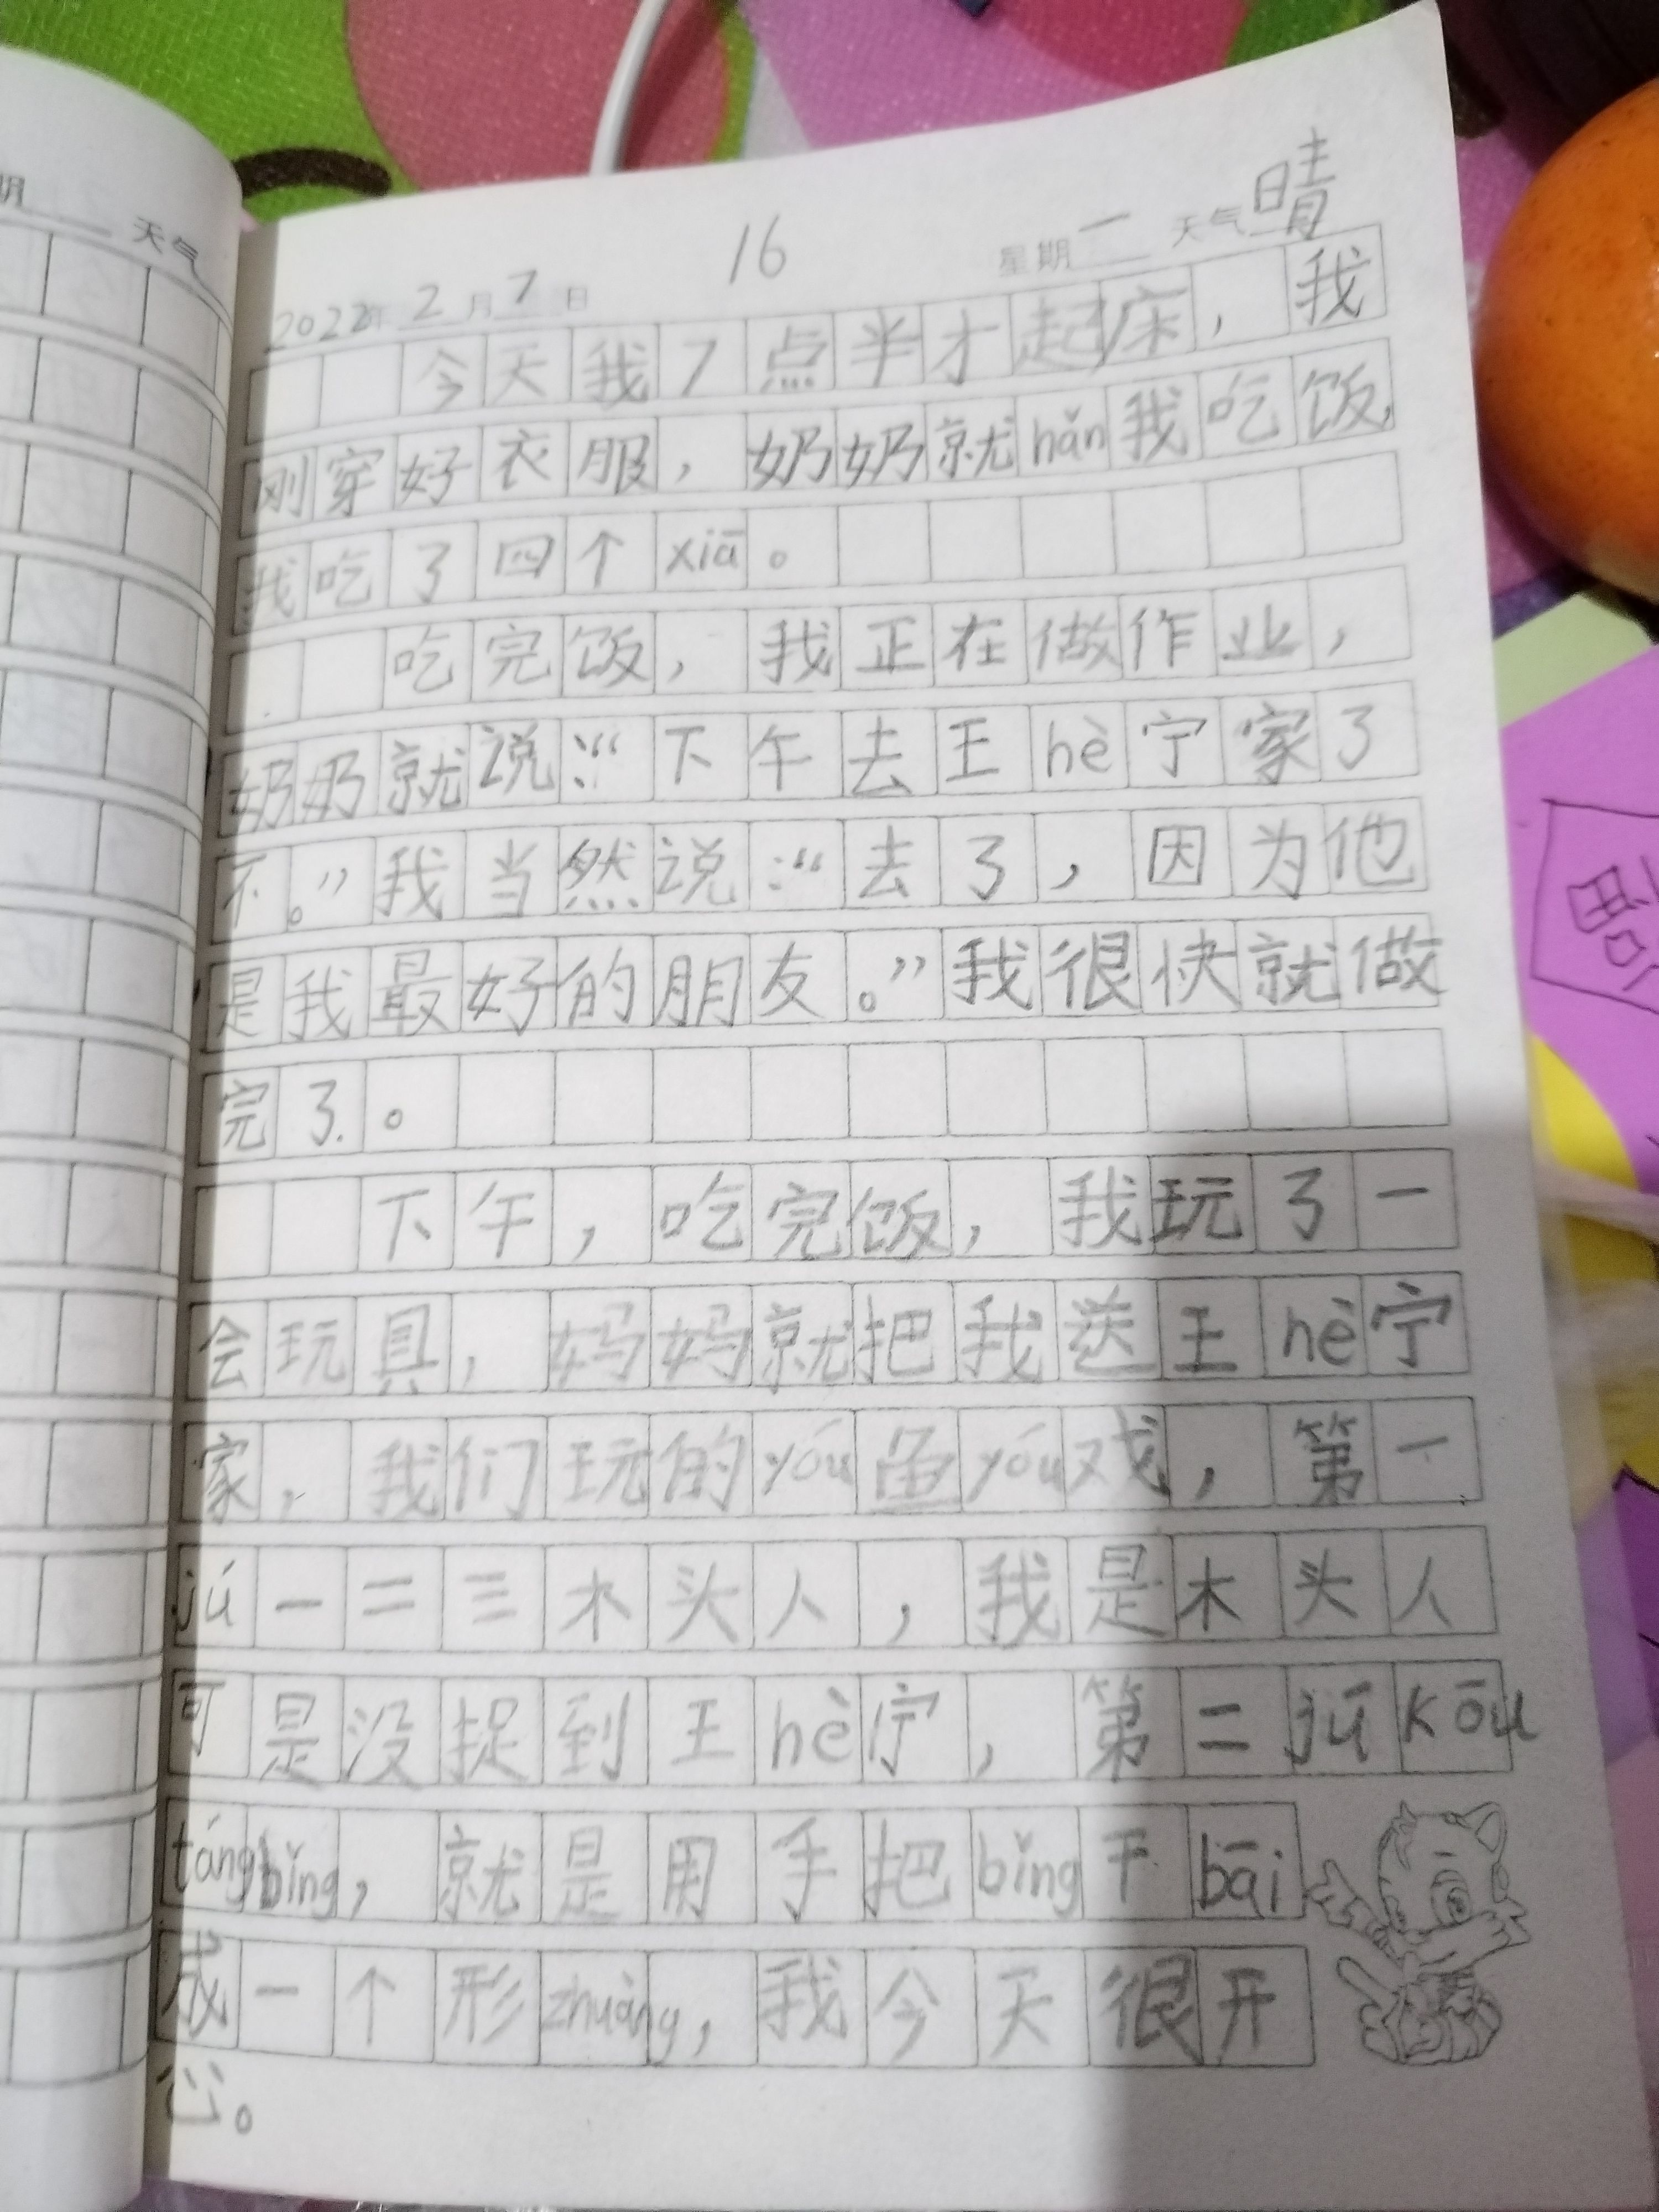 期 天气
16
2022年 2月7日 星期一 天气晴
今天我7点半才起床，我
刚穿好衣服，奶奶就hǎn我吃饭，
我吃了四个xiā。
吃完饭，我正在做作业，
奶奶就说：“下午去王hè宁家了
不。”我当然说：“去了，因为他
是我最好的朋友。”我很快就做
完了。
下午，吃完饭，我玩了一
会玩具，妈妈就把我送王hè宁
家，我们玩的yóu鱼yóu戏，第一
jú一二三木头人，我是木头人
可是没捉到王hè宁，第二jū kōu
táng bǐng，就是用手把bǐng干bāi
成一个形zhuàng，我今天很开
心。